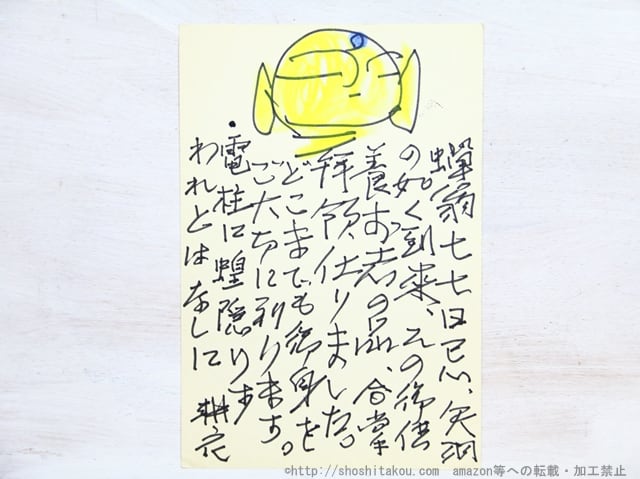 蟬翁七七日忌、矢羽
の如く到来、その御供
養お志の品、合掌
拝領仕りました。
どこまでも御身を
ご大切に祈ります。
・電柱に蝗隠りす
われとはなしに 耕衣
©http://shoshitakou.com amazon等への転載・加工禁止